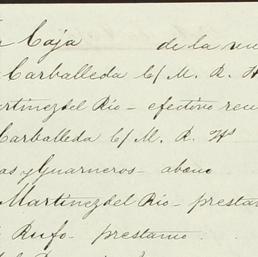 Caja de la
Carballeda C/ M. R. Hs
Martinez del Rio - efectivo
Carballeda C/ M. R. Hs
as y Guarneros - abono
Martinez del Rio - presta
Rufo - prestamo.